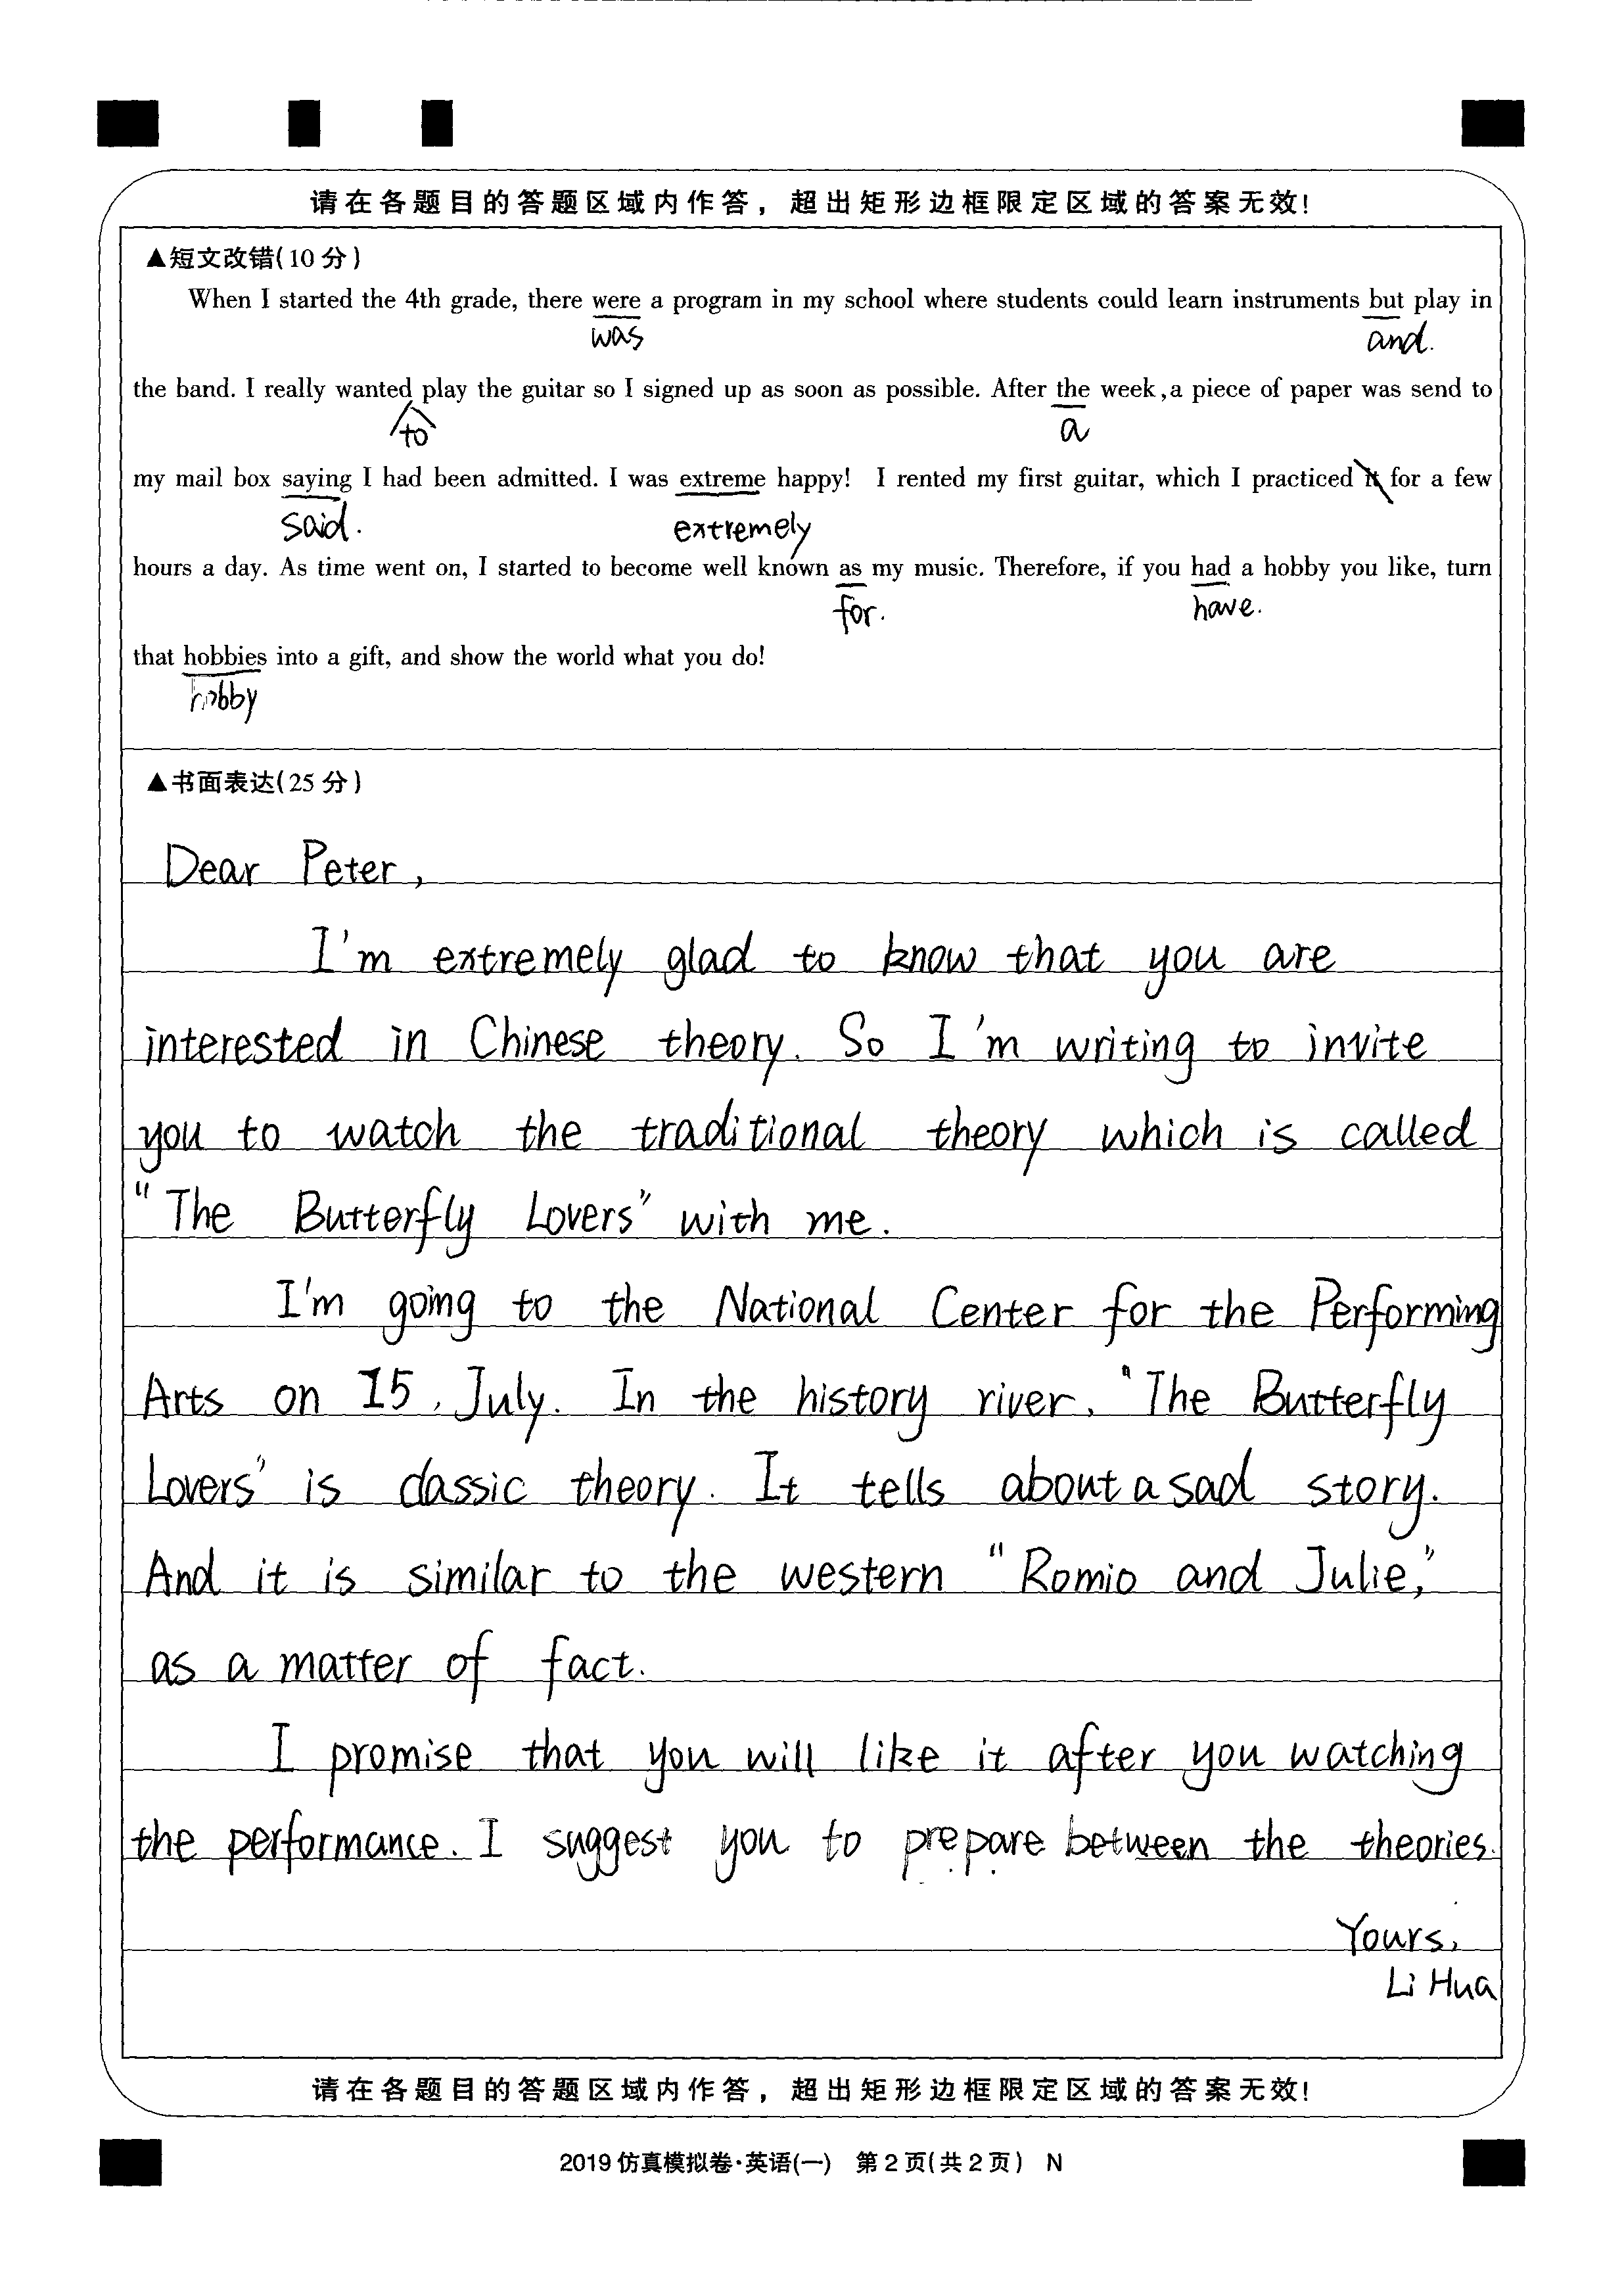 请在各题目的答题区域内作答，超出矩形边框限定区域的答案无效!
▲短文改错(10分)
When I started the 4th grade, there were a program in my school where students could learn instruments but play in
was and.
the band. I really wanted play the guitar so I signed up as soon as possible. After the week,a piece of paper was send to
to a
my mail box saying I had been admitted. I was extreme happy! I rented my first guitar, which I practiced it for a few
said. extremely
hours a day. As time went on, I started to become well known as my music. Therefore, if you had a hobby you like, turn
for. have.
that hobbies into a gift, and show the world what you do!
hobby
▲书面表达(25分)
Dear Peter,
I'm extremely glad to know that you are
interested in Chinese theory. So I'm writing to invite
you to watch the traditional theory which is called
"The Butterfly Lovers" with me.
I'm going to the National Center for the Performing
Arts on 15, July. In the history river, "The Butterfly
Lovers" is classic theory. It tells about a sad story.
And it is similar to the western "Romio and Julie,"
as a matter of fact.
I promise that you will like it after you watching
the performance. I suggest you to prepare between the theories.
Yours,
Li Hua
请在各题目的答题区域内作答，超出矩形边框限定区域的答案无效!
2019仿真模拟卷·英语(一) 第2页(共2页) N